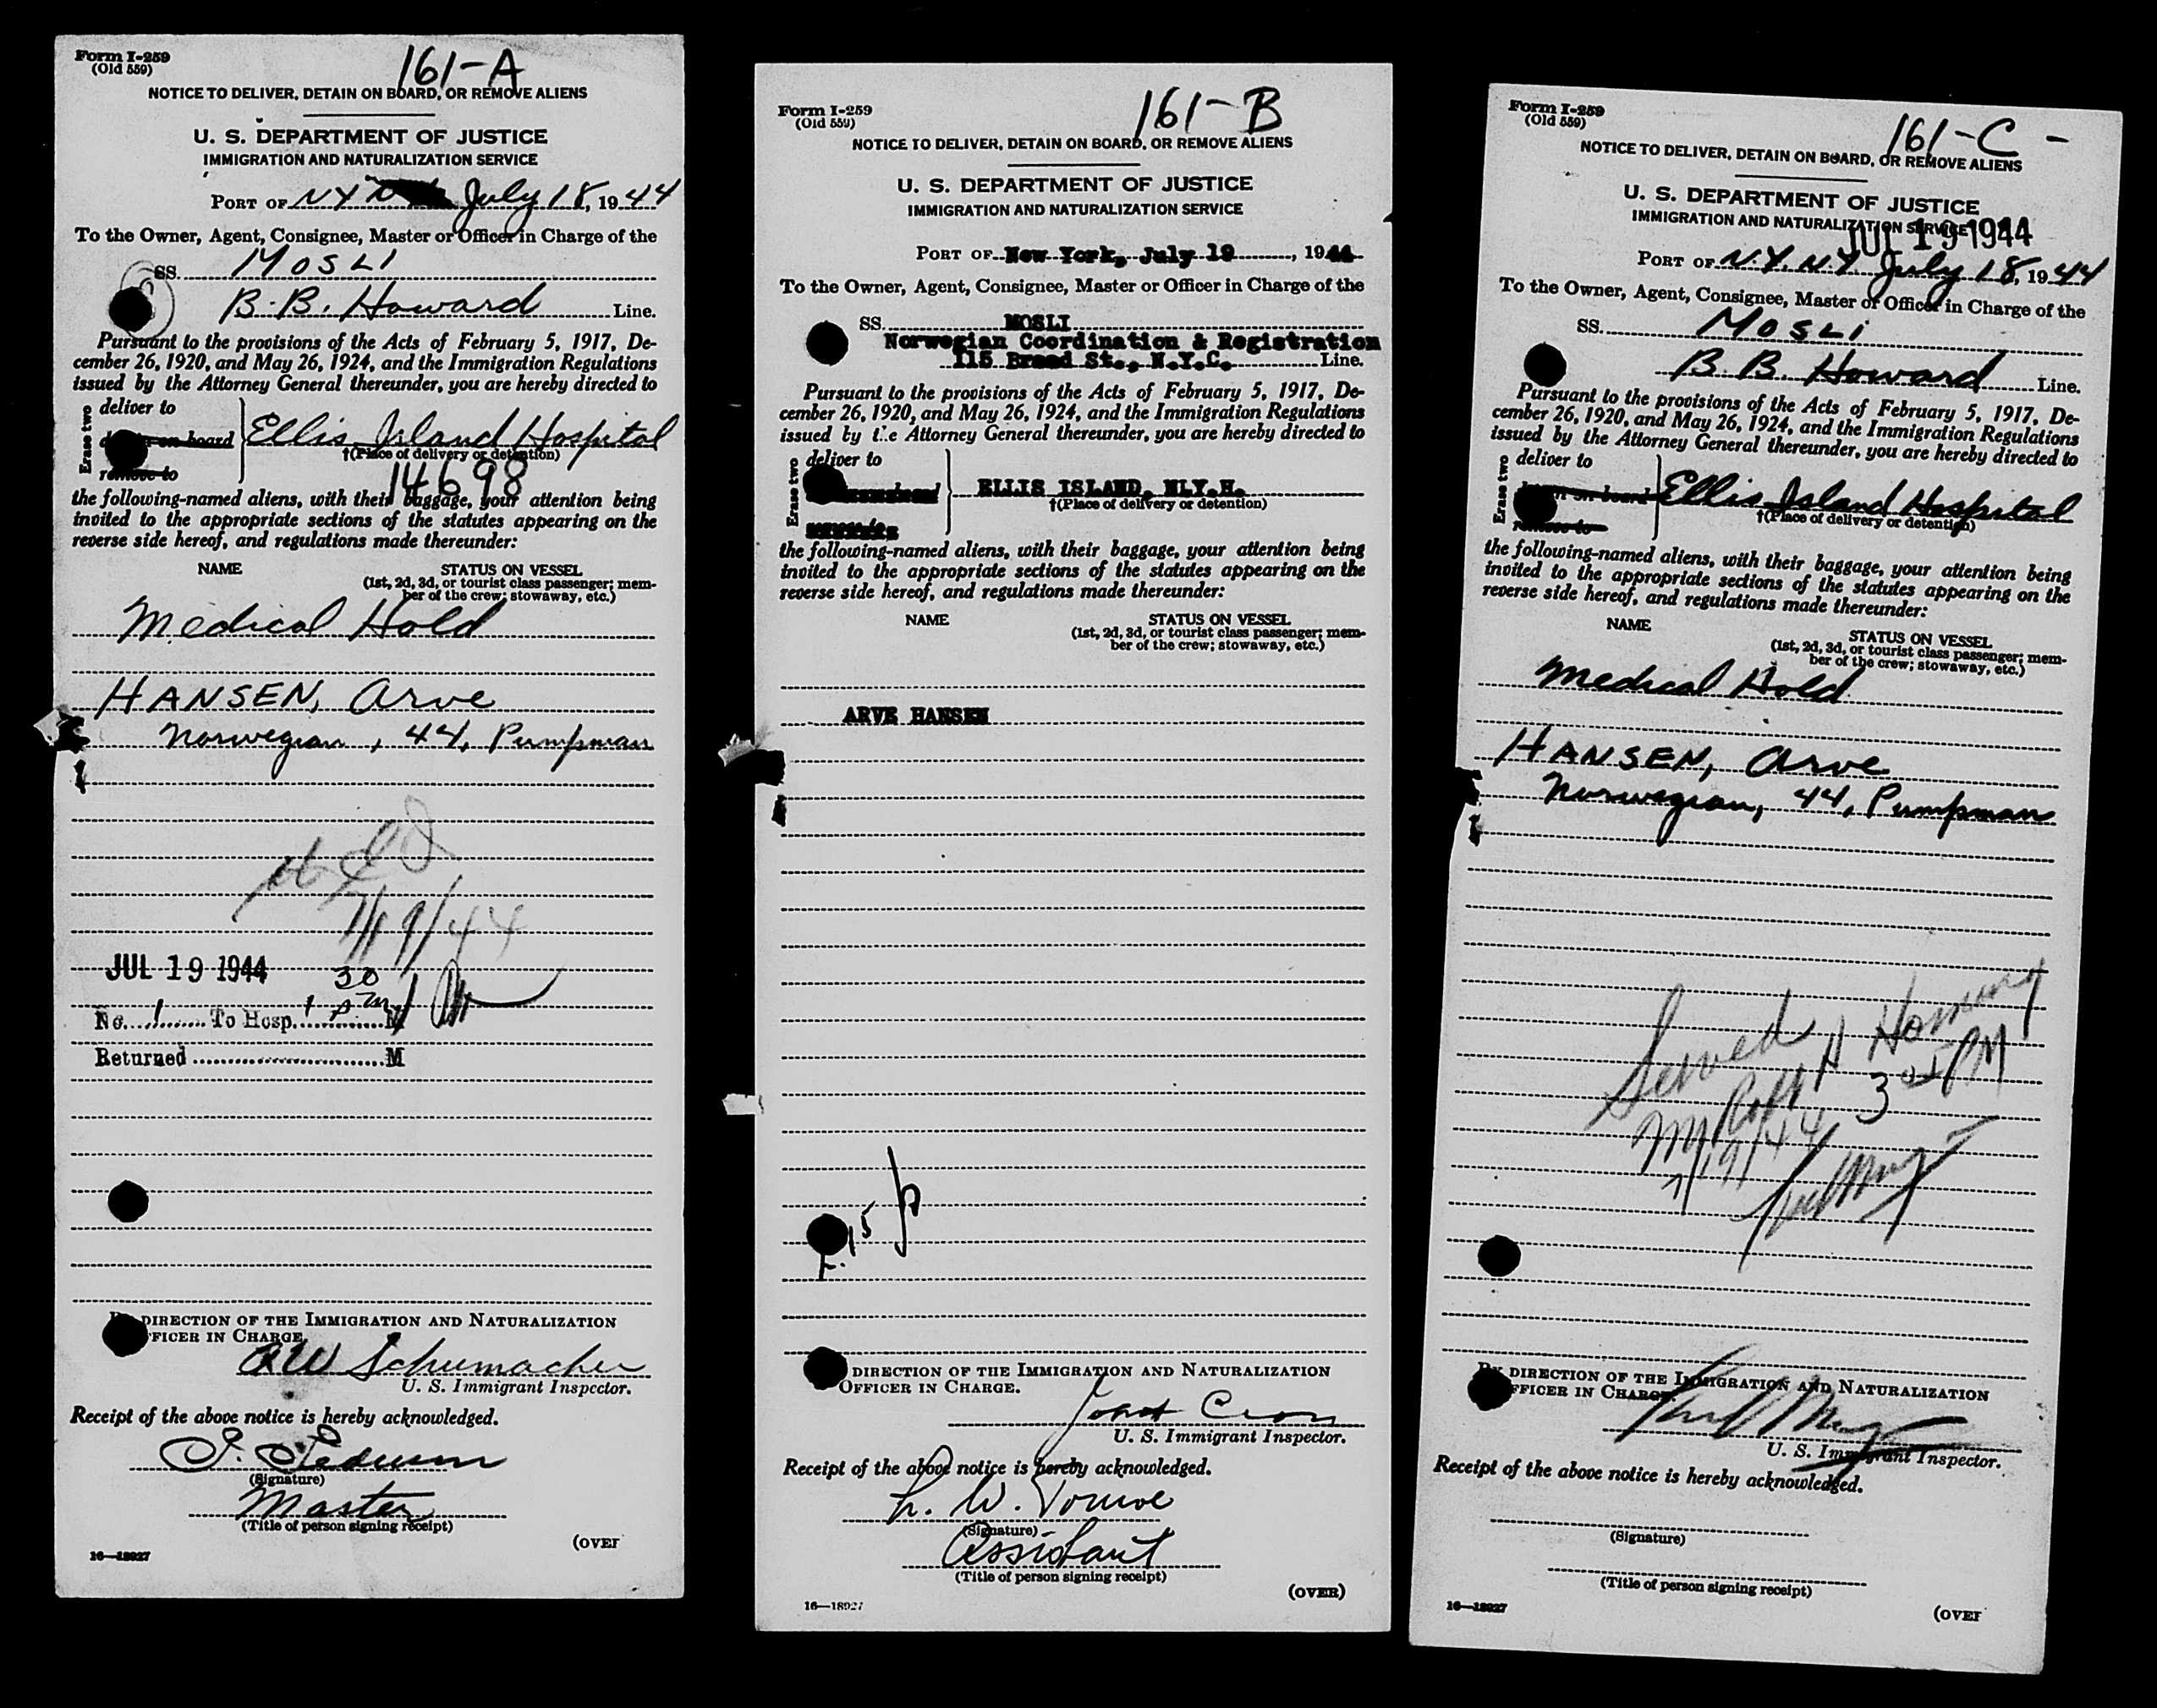 Form I-259
(Old 559)
161-A
NOTICE TO DELIVER, DETAIN ON BOARD, OR REMOVE ALIENS
U. S. DEPARTMENT OF JUSTICE
IMMIGRATION AND NATURALIZATION SERVICE
PORT OF N Y N July 18, 1944
To the Owner, Agent, Consignee, Master or Officer in Charge of the
SS. MOSLI
B. B. Howard Line.
Pursuant to the provisions of the Acts of February 5, 1917, De-
cember 26, 1920, and May 26, 1924, and the Immigration Regulations
issued by the Attorney General thereunder, you are hereby directed to
Erase two
deliver to
on board
Ellis Island Hospital
†(Place of delivery or detention)
remove to
14698
the following-named aliens, with their baggage, your attention being
invited to the appropriate sections of the statutes appearing on the
reverse side hereof, and regulations made thereunder:
NAME STATUS ON VESSEL
(1st, 2d, 3d, or tourist class passenger; mem-
ber of the crew; stowaway, etc.)
Medical Hold
HANSEN, Arve
Norwegian, 44, Pumpman
7/19/44
JUL 19 1944
No. 1 To Hosp. 1 30 P M
Returned M
DIRECTION OF THE IMMIGRATION AND NATURALIZATION
FFICER IN CHARGE.
R W Schumacher
U. S. Immigrant Inspector.
Receipt of the above notice is hereby acknowledged.
(Signature)
Master
(Title of person signing receipt)
(OVER
16—18927
Form I-259
(Old 559)
161-B
NOTICE TO DELIVER, DETAIN ON BOARD, OR REMOVE ALIENS
U. S. DEPARTMENT OF JUSTICE
IMMIGRATION AND NATURALIZATION SERVICE
PORT OF New York, July 19, 1944
To the Owner, Agent, Consignee, Master or Officer in Charge of the
SS. MOSLI
Norwegian Coordination & Registration
115 Broad St., N.Y.C. Line.
Pursuant to the provisions of the Acts of February 5, 1917, De-
cember 26, 1920, and May 26, 1924, and the Immigration Regulations
issued by the Attorney General thereunder, you are hereby directed to
Erase two
deliver to
ELLIS ISLAND, NLY.H.
†(Place of delivery or detention)
the following-named aliens, with their baggage, your attention being
invited to the appropriate sections of the statutes appearing on the
reverse side hereof, and regulations made thereunder:
NAME STATUS ON VESSEL
(1st, 2d, 3d, or tourist class passenger; mem-
ber of the crew; stowaway, etc.)
ARVE HANSEN
15 p
DIRECTION OF THE IMMIGRATION AND NATURALIZATION
OFFICER IN CHARGE.
U. S. Immigrant Inspector.
Receipt of the above notice is hereby acknowledged.
(Signature)
Assistant
(Title of person signing receipt)
(OVER)
16—18927
Form I-259
(Old 559)
161-C -
NOTICE TO DELIVER, DETAIN ON BOARD, OR REMOVE ALIENS
U. S. DEPARTMENT OF JUSTICE
IMMIGRATION AND NATURALIZATION SERVICE
JUL 19 1944
PORT OF N.Y. N.Y. July 18, 1944
To the Owner, Agent, Consignee, Master or Officer in Charge of the
SS. MOSLI
B. B. Howard Line.
Pursuant to the provisions of the Acts of February 5, 1917, De-
cember 26, 1920, and May 26, 1924, and the Immigration Regulations
issued by the Attorney General thereunder, you are hereby directed to
Erase two
deliver to
on board
Ellis Island Hospital
†(Place of delivery or detention)
remove to
the following-named aliens, with their baggage, your attention being
invited to the appropriate sections of the statutes appearing on the
reverse side hereof, and regulations made thereunder:
NAME
STATUS ON VESSEL
(1st, 2d, 3d, or tourist class passenger; mem-
ber of the crew; stowaway, etc.)
Medical Hold
HANSEN, Arve
Norwegian, 44, Pumpman
Served
3 05 PM
7/19/44
BY DIRECTION OF THE IMMIGRATION AND NATURALIZATION
FFICER IN CHARGE.
U. S. Immigrant Inspector.
Receipt of the above notice is hereby acknowledged.
(Signature)
(Title of person signing receipt)
(OVER
16—18927